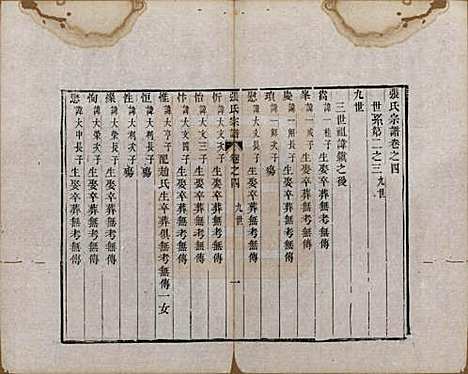 張氏宗譜卷之四
世系第二之三 九世
九世
三世祖諱鐵之後
諱一桂子 生娶卒葬無考無傳
峯 諱一成子 生娶卒葬無考無傳
慶 諱一解長子 生娶卒葬無考無傳
瑣 諱一解次子 殤
慰 諱大文長子 生娶卒葬無考無傳
張氏宗譜 卷之四 九世 一
忻 諱大文次子 生娶卒葬無考無傳
怡 諱大文三子 生娶卒葬無考無傳
忭 諱大文四子 生娶卒葬無考無傳
惟 諱大亨子 配趙氏生卒葬俱無考無傳一女
恒 諱大利長子 殤
性 諱大利次子 生娶卒葬無考無傳
諱大榮長子 生娶卒葬無考無傳
恂 諱大榮次子 生娶卒葬無考無傳
諱大申長子 生娶卒葬無考無傳